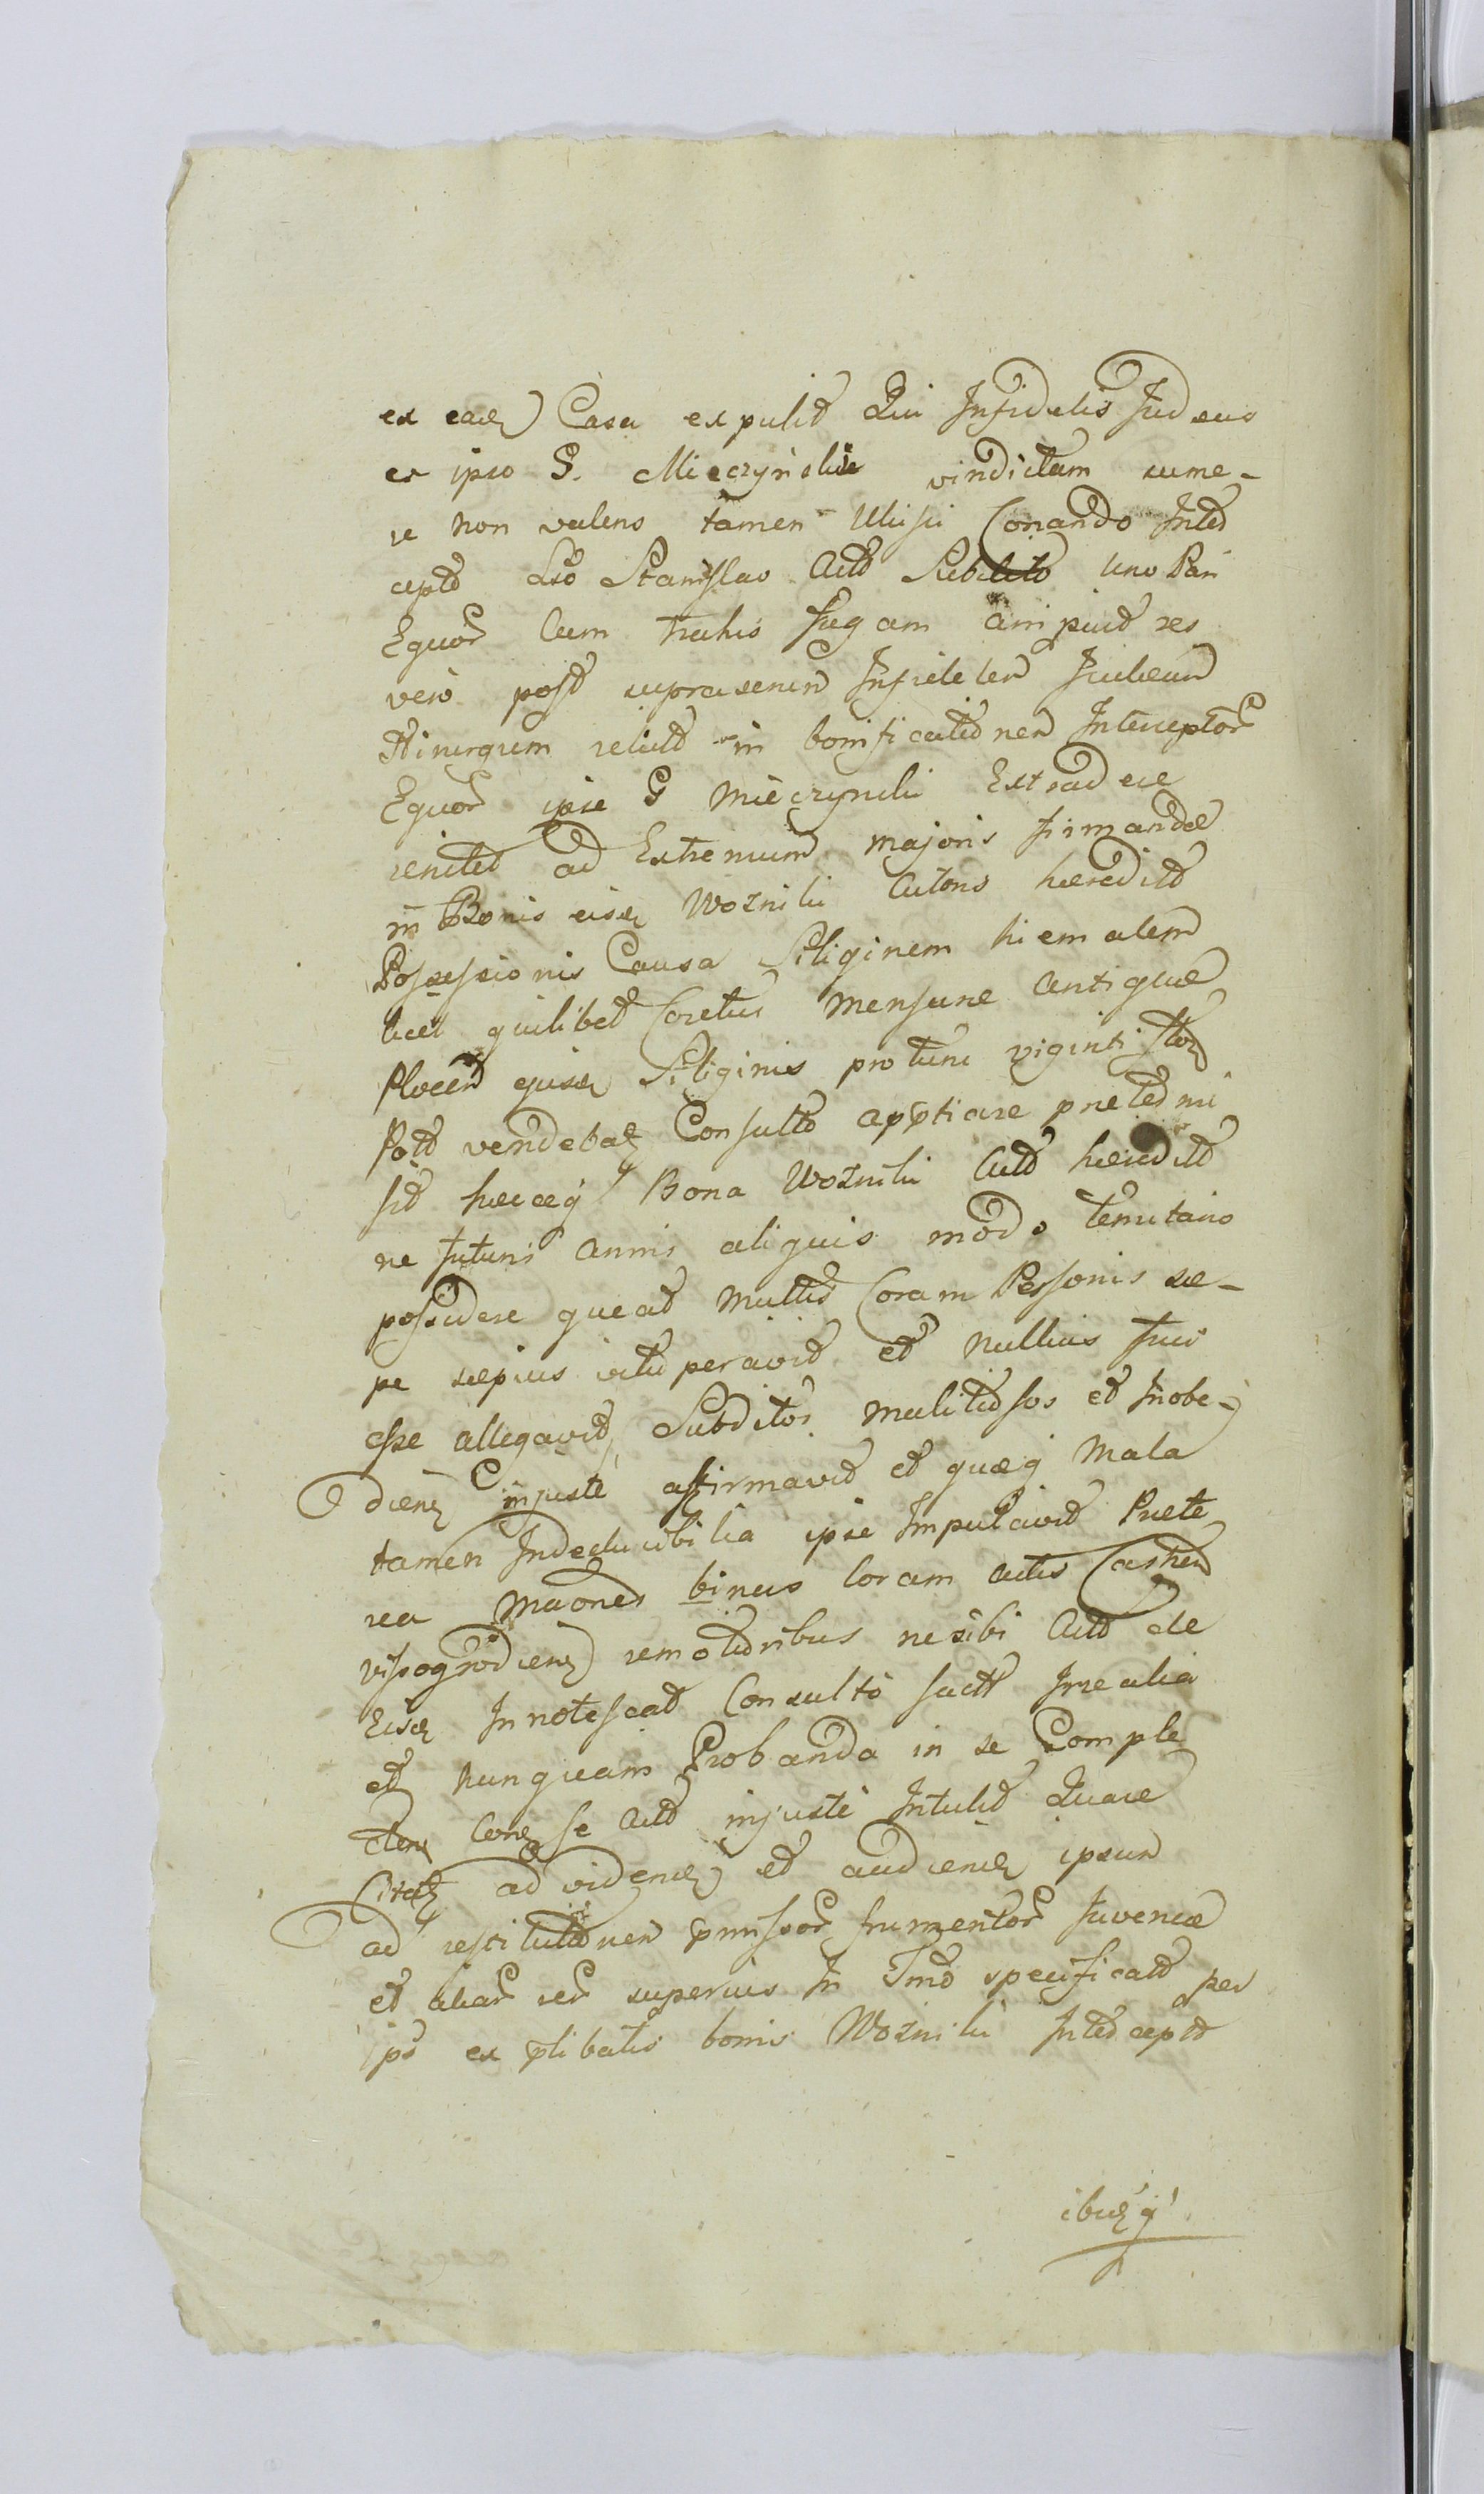 ex eadē Casa expulit Qui Infidelis Judeus
ex ipso G. Mieczynskie vindictam sume-
re non valens tamen Ulusci Conando Inter
cepto Lso Stanislao Act Subdito uno Pari
Equor Cum trahis fugam arripuit res
vero post supra Infidelem Judeum
relict in bonificationem Interceptor
Equor ipse G Mieczynski Extradere
renitet ad Extremum majoris firmandæ
in Bonis eisd Wozniki Actoris hæredit
Possessionis Causa Siliginem hiemalem
licet quilibet Coretus Mensuræ antiquæ
Plocen ejusd Siliginis pro tunc viginti flor
Pol vendebat Consulto appretiare prætermi
sit hæceq Bona Wozniki Act hæredit
ne futuris annis aliquis modo tenutario
possidere queat Multis Coram Personis sæ-
pe sæpius vituperavit et nullius fruc
esse allegavit, Subditos malitiosos et Inobe-
dien injuste affirmavit et quæq Mala
tamen Indeducibilia ipse Imputavit Præte
rea Maones binas coram actis Castren
remotioribus ne sibi Act de
Eisd Innotescat Consulto fact Irrealia
et nunquam Probanda in se Comple
cten Con se Act injuste Intulit Quare
Citat ad vidend et audiend ipsum
ad restitutionem pmissor frumentor Juvencæ
et aliar rer superius In Tmo specificat per
ips ex plibatis bonis Wozniki Intercept
ibidq